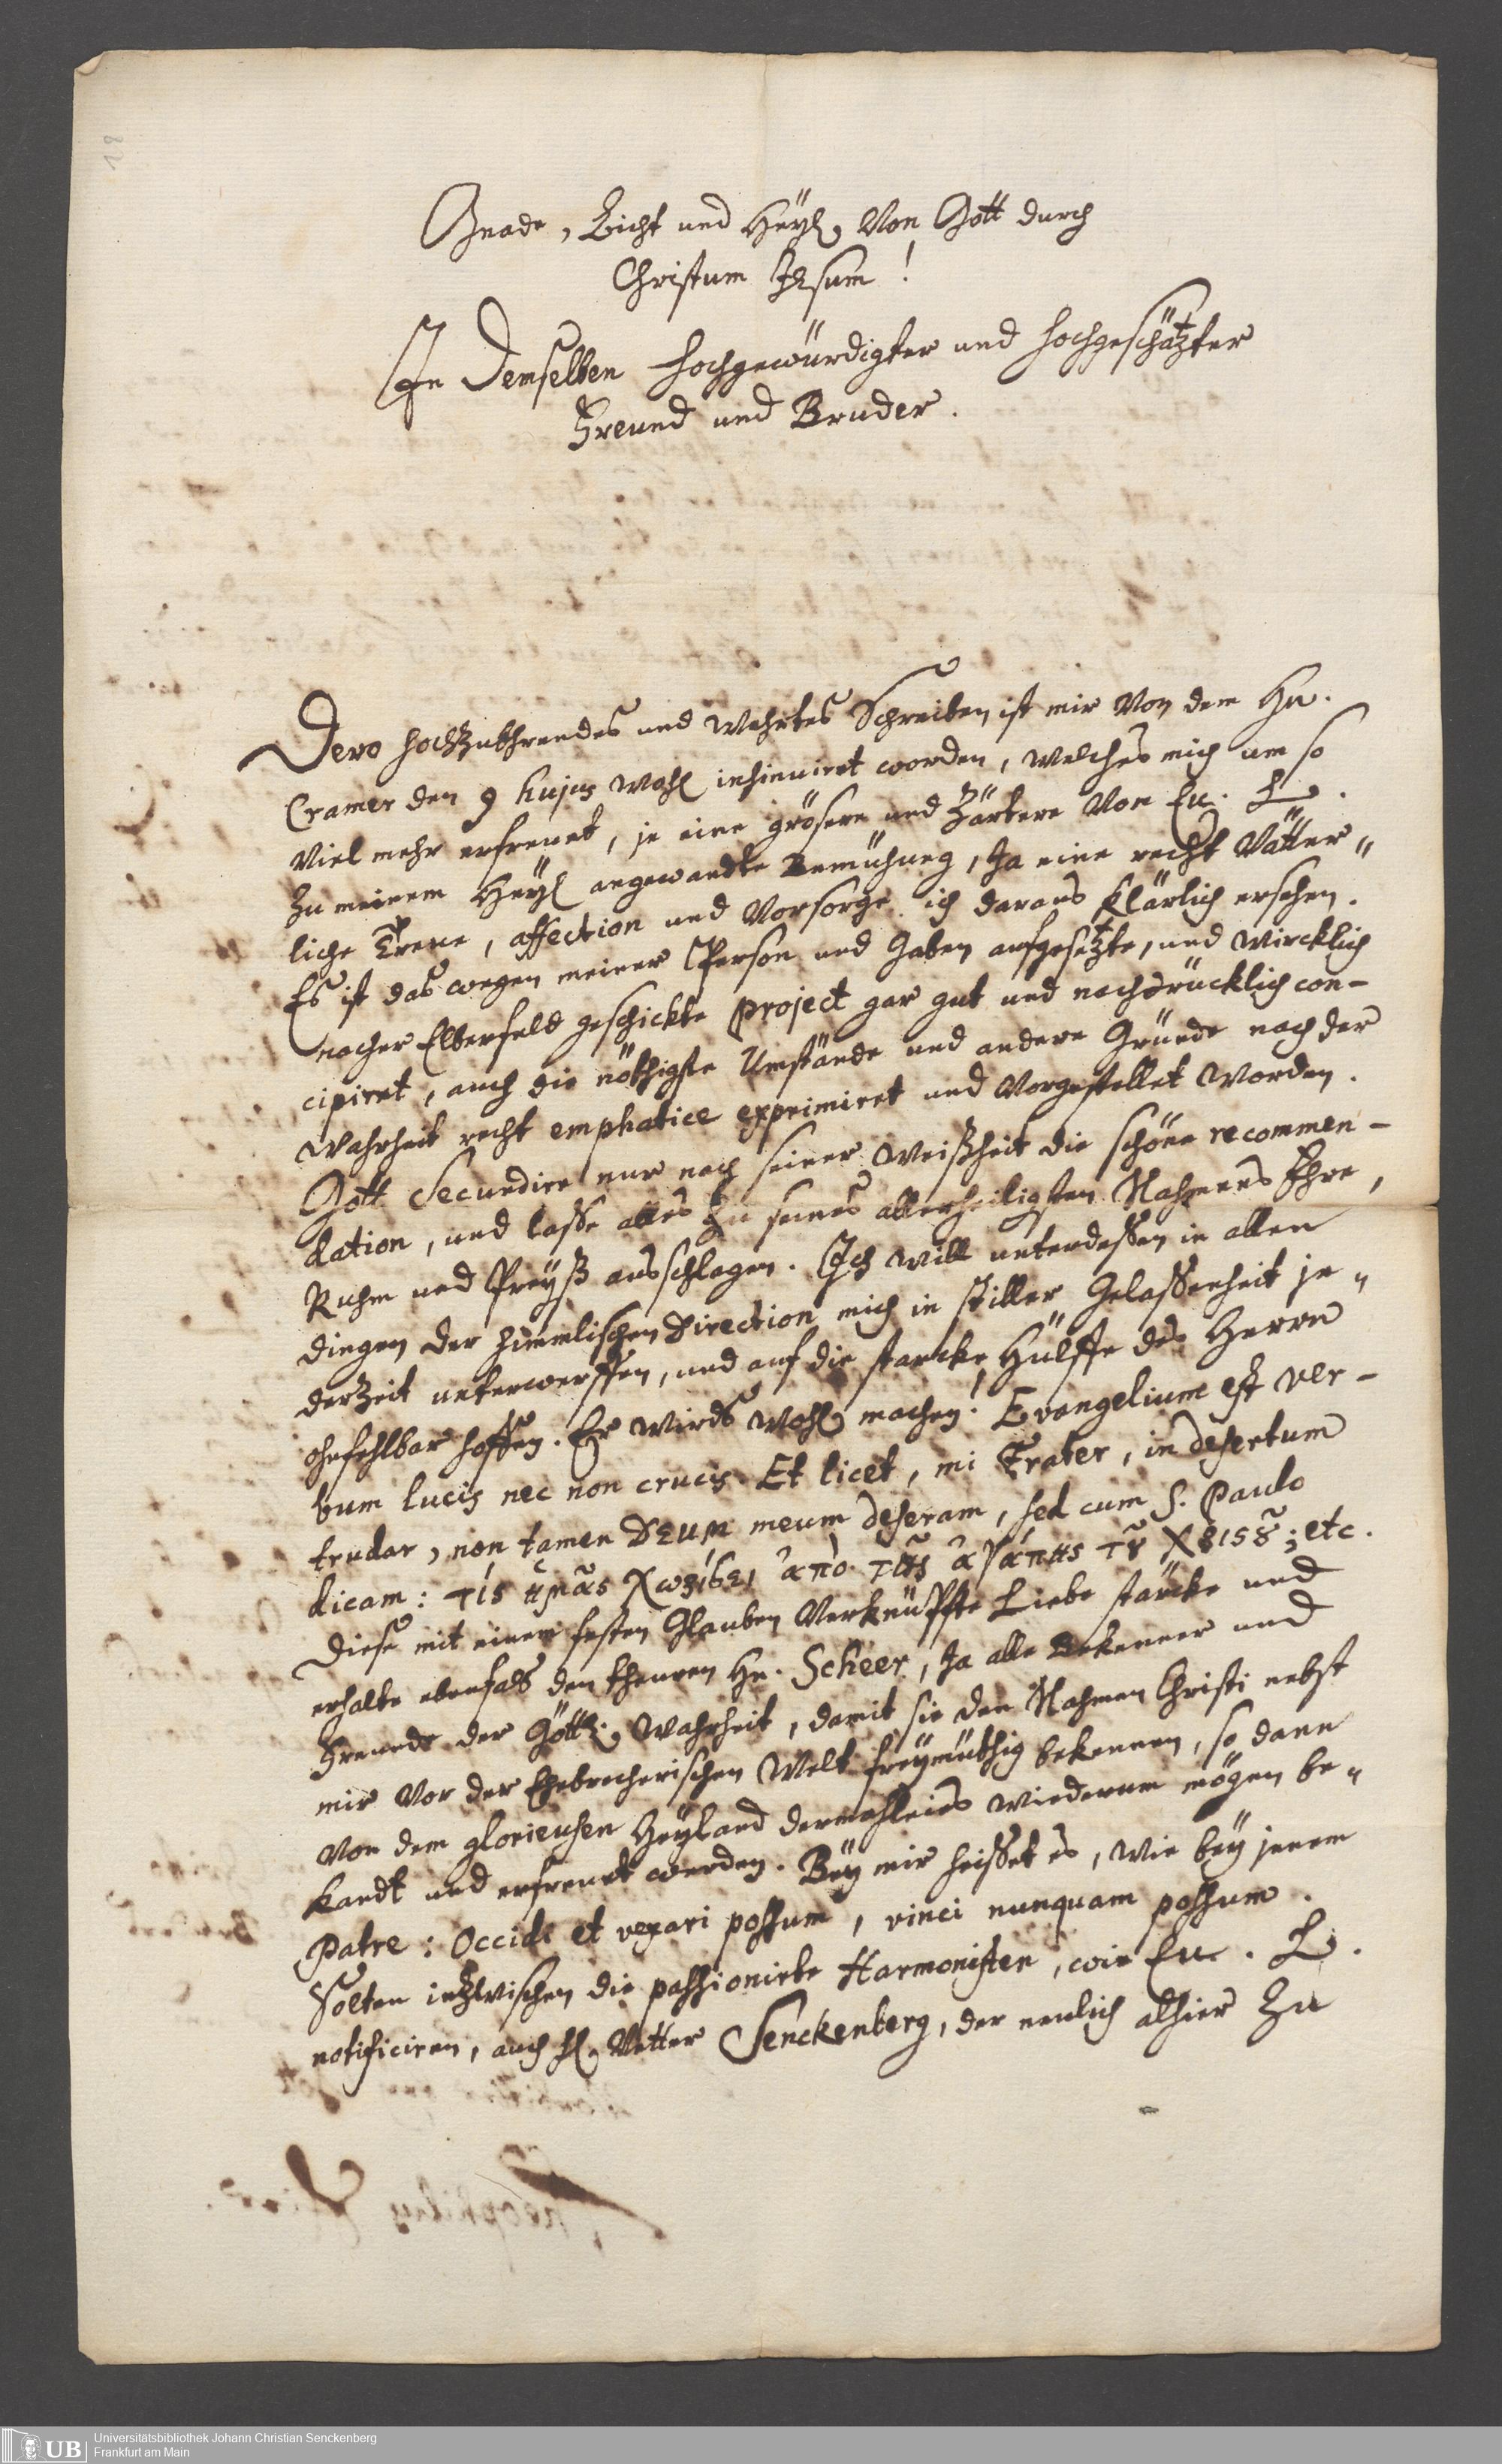 18
Gnade, Licht und Heyl, Von Gott durch
Christum JEsum!
In Demselben hochgewürdigter und hochgeschätzter
Freund und Bruder.
Dero hochzuEhrendes und Wehrtes Schreiben ist mir Von dem Hn.
Cramer den 9 hujus Wohl insinuiret worden, welches mich um so
Viel mehr erfreuet, je eine grösere und Zärtere Von Eu. L.
Zu meinem Heyl angewandte Bemühung, Ja eine recht Vätter„
liche Treue, affection und Vorsorge ich daraus klärlich ersehen.
Es ist das wegen meiner Person und Gaben aufgesetzte, und Wircklich
nacher Elberfeld geschickte project gar gut und nachdrücklich con-
cipiret, auch die nöthigste Umstände und andere Gründe nach der
Wahrheit recht emphatice exprimiret und Vorgestellet Worden.
Gott Secundire nur nach seiner Weißheit die schöne recommen-
dation, und lasse alles Zu seines allerheiligsten Nahmens Ehre,
Ruhm und Preyß ausschlagen. Ich will unterdessen in allen
dingen der himmlischen Direction mich in stiller Gelassenheit je„
derZeit unterwerffen, und auf die starcke Hülffe des Herrn
ohnfehlbar hoffen. Er wirds Wohl machen! Evangelium est ver-
bum lucis nec non crucis. Et licet, mi Frater, in desertum
trudar, non tamen DEUM meum deseram, sed cum S. Paulo
dicam: τίς ἡμᾶς χωρίσει ἀπὸ τῆς ἀγάπης τȣ͂ Χριςȣ͂; etc.
Diese mit einem festen Glauben Verknüpffte Liebe stärcke und
erhalte ebenfals den theuren Hn. Scheer, Ja alle Bekenner und
Freunde der Göttl. Wahrheit, damit sie den Nahmen Christi nebst
mir Vor der Ehebrecherischen Welt freymüthig bekennen, so dann
Von dem glorieusen Heyland dermahleins Wiederum mögen be„
kandt und erfreuet werden. Bey mir heisset es, Wie bey jenem
Patre: Occidi et vexari possum, vinci nunquam possum.
Solten inzwischen die passionirte Harmonisten, wie Eu. L.
notificiren, auch H. Vetter Senckenberg, der neulich alhier Zu
UB
Universitätsbibliothek Johann Christian Senckenberg
Frankfurt am Main